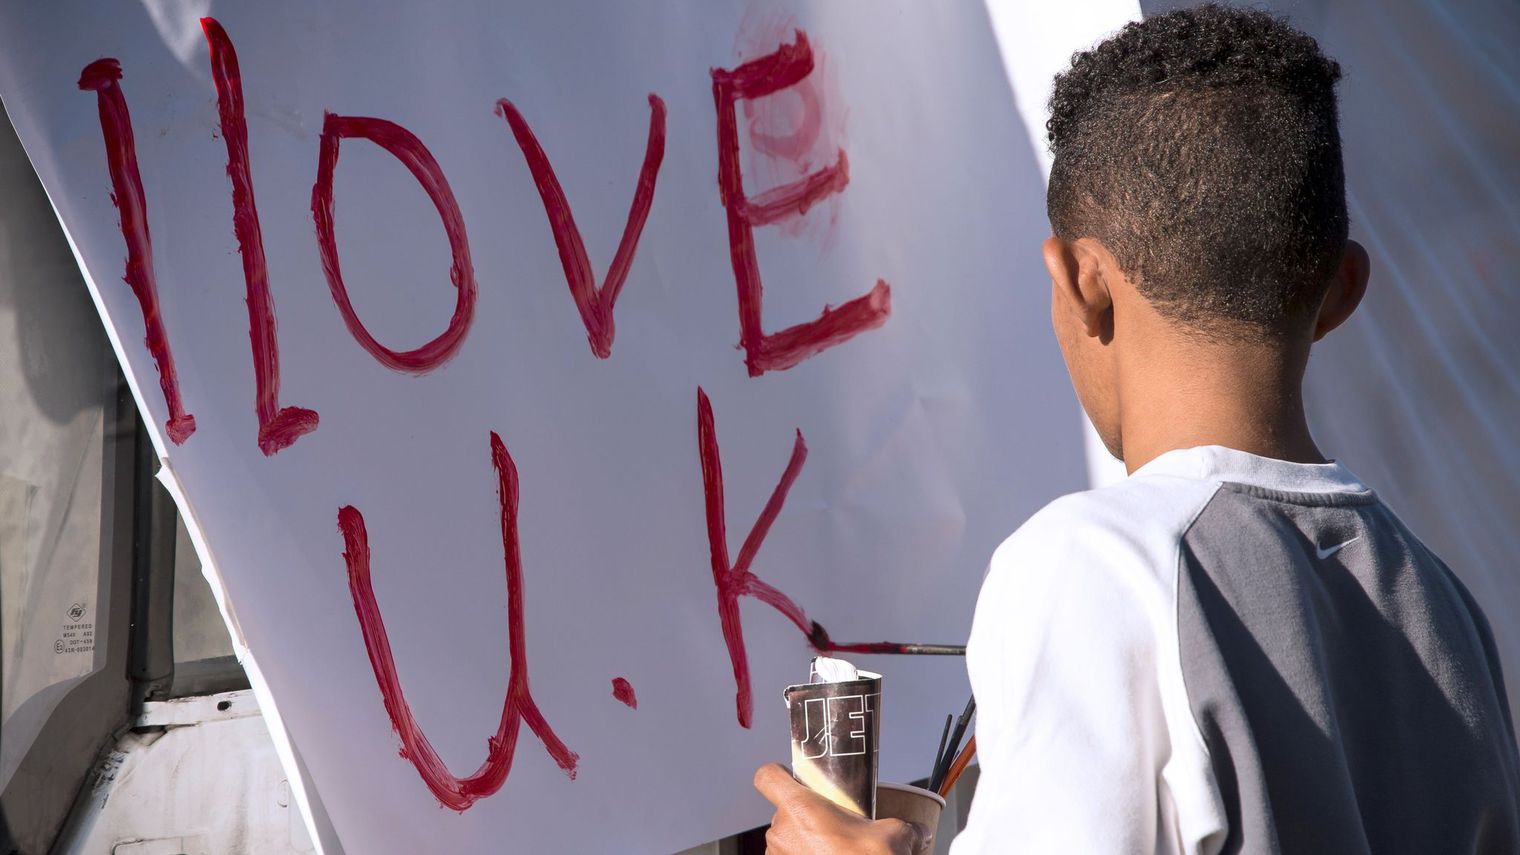 I LOVE
U.K
JET
TEMPERED